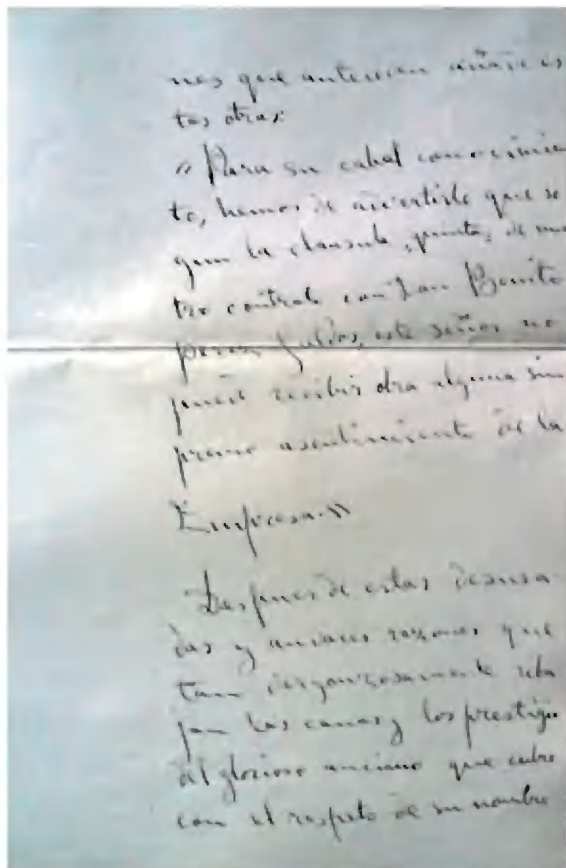 nes que anteceden añade es
tas otras:
« Para su cabal conocimien
to, hemos de advertirle que se
gun la clausula, quinta, de nues
tro contrato con Don Benito
Perez Galdos, este señor no
puede recibir obra alguna sin
previo asentimiento de la
Empresa »
Despues de estas desusa
das y razones que
tan vergonzosamente reba
jan las canas y los prestigios
del glorioso anciano que cubre
con el respeto de su nombre